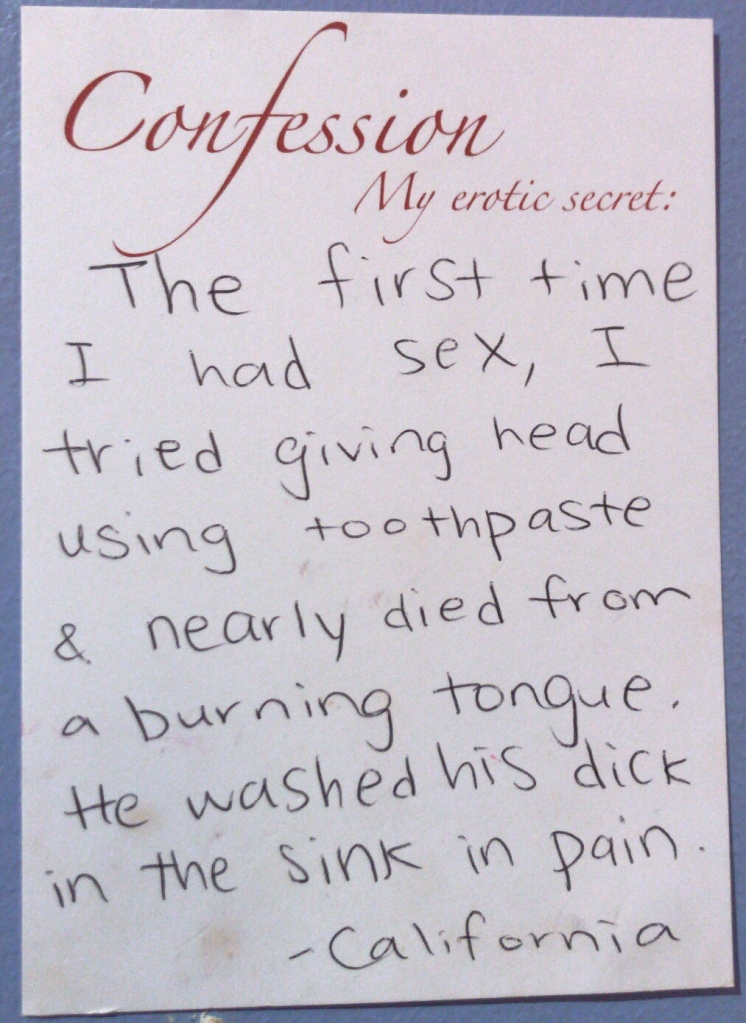 Confession
My erotic secret:
The first time
I had sex, I
tried giving head
using toothpaste
& nearly died from
a burning tongue.
He washed his dick
in the sink in pain.
-California